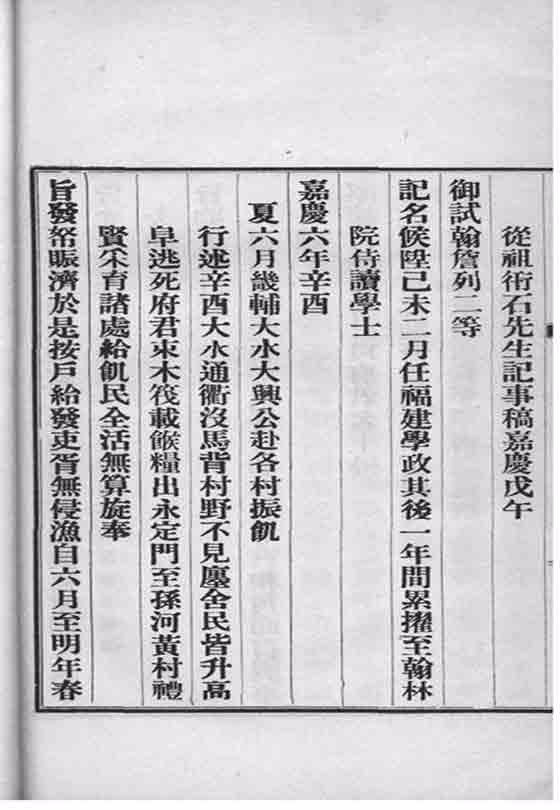 從祖術石先生記事稿嘉慶戊午
御試翰詹列二等
記名候陞己未二月任福建學政其後一年間累擢至翰林
院侍讀學士
嘉慶六年辛酉
夏六月畿輔大水大興公赴各村振飢
行述辛酉大水通衢沒馬背村野不見廬舍民皆升高
阜逃死府君束木筏載餱糧出永定門至孫河黃村禮
賢采育諸處給飢民全活無算旋奉
旨發帑賑濟於是按戶給發吏胥無侵漁自六月至明年春